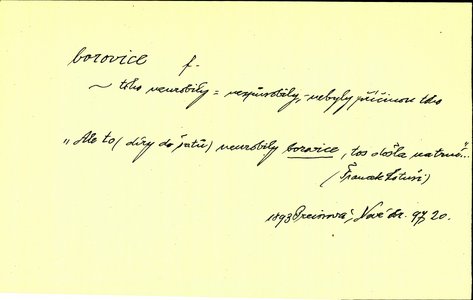 borovice f.
~ toho neurobily = nezpůsobily, - nebyly příčinou toho
"Ale to (díry do šatů) neurobily borovice, tos došla na trní..."
(Francek
1893 Preissová, Nové 97, 20.